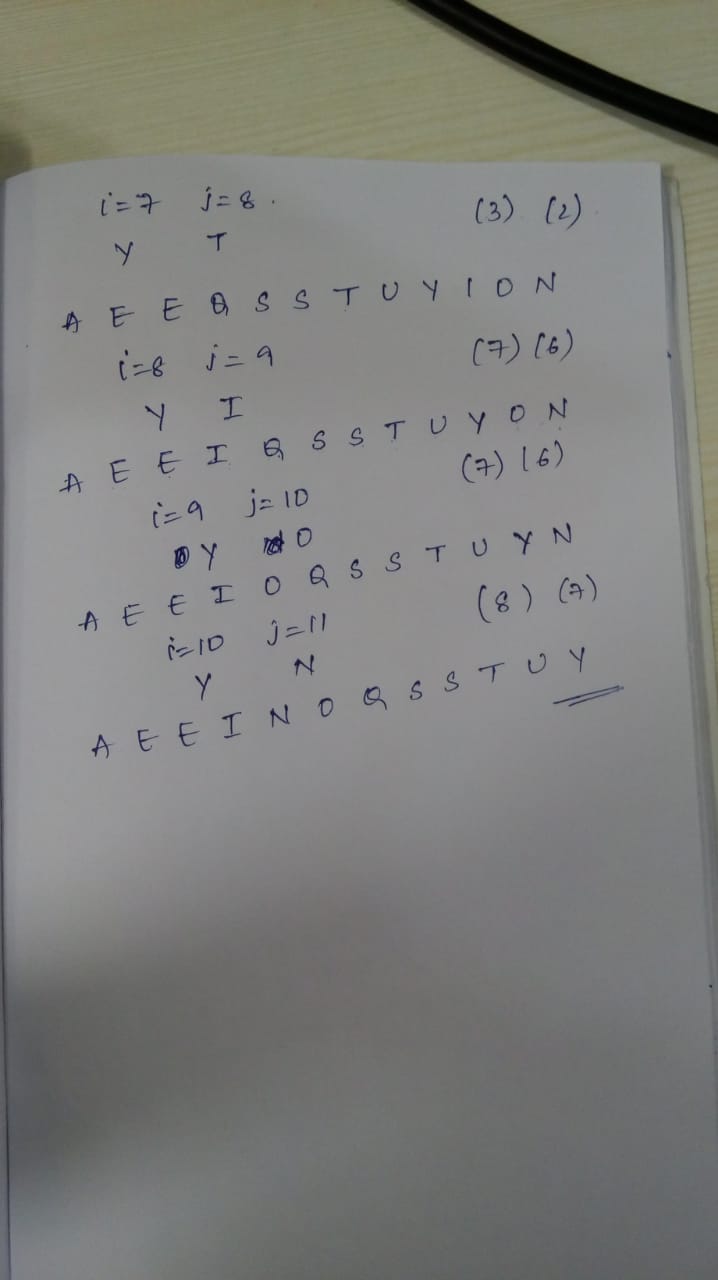 i=7 j=8. (3) (2)
Y T
A E E Q S S T U Y I O N
i=8 j=9 (7) (6)
Y I
A E E I Q S S T U Y O N
i=9 j=10 (7) (6)
Y O
A E E I O Q S S T U Y N
i=10 j=11 (8) (7)
Y N
A E E I N O Q S S T U Y